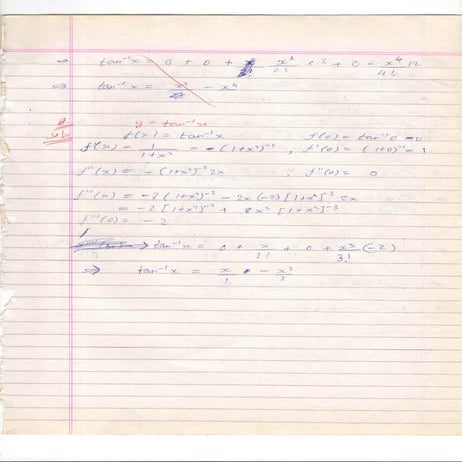 ⇒ tan⁻¹x = 0 + 0 + x²/2! × 2 + 0 - x⁴/4! 12
⇒ tan⁻¹x = x²/2! - x⁴
Soln y = tan⁻¹x
f(x) = tan⁻¹x f(0) = tan⁻¹0 = 0
f'(x) = 1/(1+x²) = (1+x²)⁻¹ , f'(0) = (1+0)⁻¹ = 1
f''(x) = -(1+x²)⁻² 2x , f''(0) = 0
f'''(x) = -2(1+x²)⁻² - 2x(-2)[1+x²]⁻³ 2x
= -2[1+x²]⁻² + 8x²[1+x²]⁻³
f'''(0) = -2
→ tan⁻¹x = 0 + x/1! + 0 + x³/3! (-2)
⇒ tan⁻¹x = x/1 - x³/3